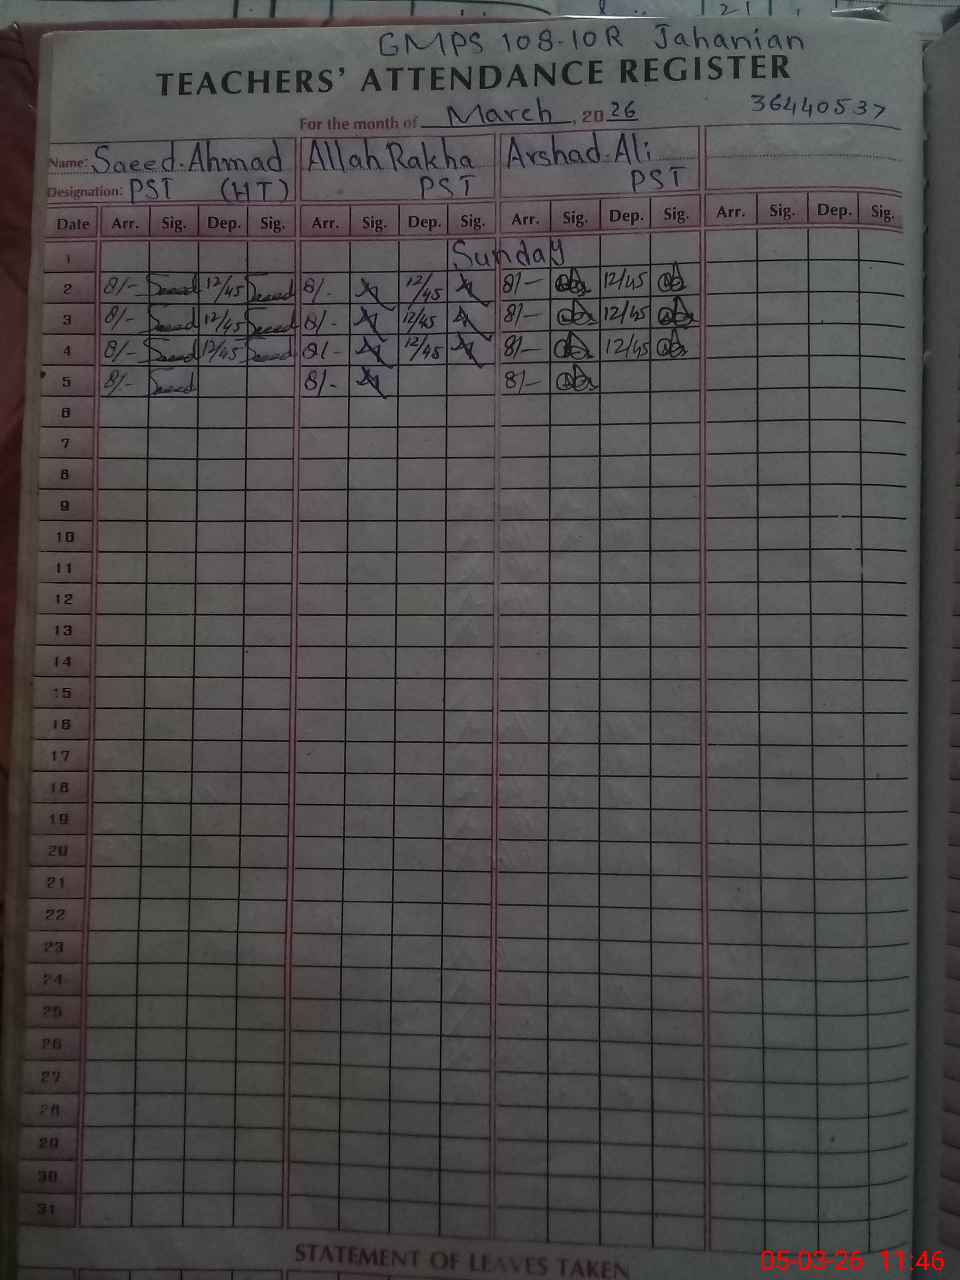 GMPS 108-10R Jahanian
TEACHERS' ATTENDANCE REGISTER
For the month of March, 2026 36440537
Name: Saeed Ahmad Allah Rakha Arshad Ali
Designation: PST (HT) PST PST
Date Arr. Sig. Dep. Sig. Arr. Sig. Dep. Sig. Arr. Sig. Dep. Sig. Arr. Sig. Dep. Sig.
1 Sunday
2 8/- Saeed 12/45 Saeed 8/- 12/45 8/- 12/45
3 8/- Saeed 12/45 Saeed 8/- 12/45 8/- 12/45
4 8/- Saeed 12/45 Saeed 8/- 12/45 8/- 12/45
5 8/- Saeed 8/- 8/-
6
7
8
9
10
11
12
13
14
15
16
17
18
19
20
21
22
23
24
25
26
27
28
29
30
31
STATEMENT OF LEAVES TAKEN
05-03-26 11:46